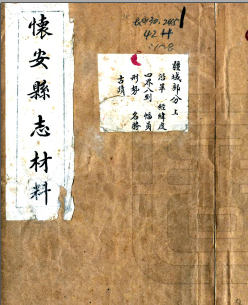 懷安縣志材料
疆域部分上
沿革 經緯度
四界八到 幅員
形勢 名勝
古蹟